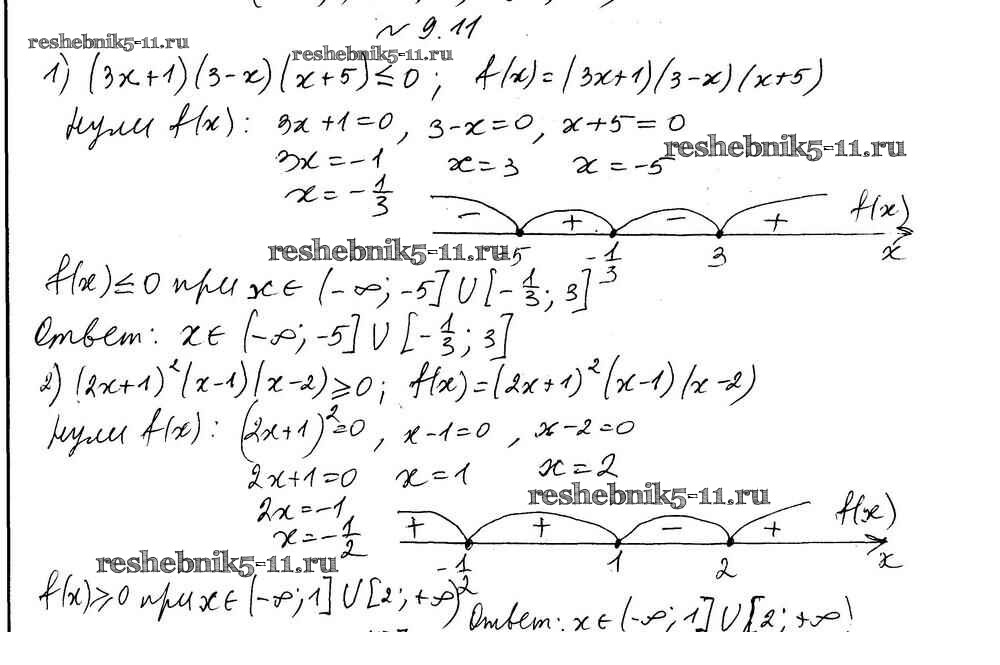 № 9.11
reshebnik5-11.ru
reshebnik5-11.ru
1) (3x+1)(3-x)(x+5)≤0; f(x)=(3x+1)(3-x)(x+5)
Нули f(x): 3x+1=0, 3-x=0, x+5=0
reshebnik5-11.ru
3x=-1 x=3 x=-5
x=-1/3
- + - + f(x)
reshebnik5-11.ru
-5 -1/3 3 x
f(x)≤0 при x∈(-∞;-5]∪[-1/3;3]
Ответ: x∈(-∞;-5]∪[-1/3;3]
2) (2x+1)²(x-1)(x-2)≥0; f(x)=(2x+1)²(x-1)(x-2)
Нули f(x): (2x+1)²=0, x-1=0, x-2=0
2x+1=0 x=1 x=2
reshebnik5-11.ru
2x=-1
x=-1/2
+ + - + f(x)
reshebnik5-11.ru
-1/2 1 2 x
f(x)≥0 при x∈(-∞;1]∪[2;+∞)
Ответ: x∈(-∞;1]∪[2;+∞)